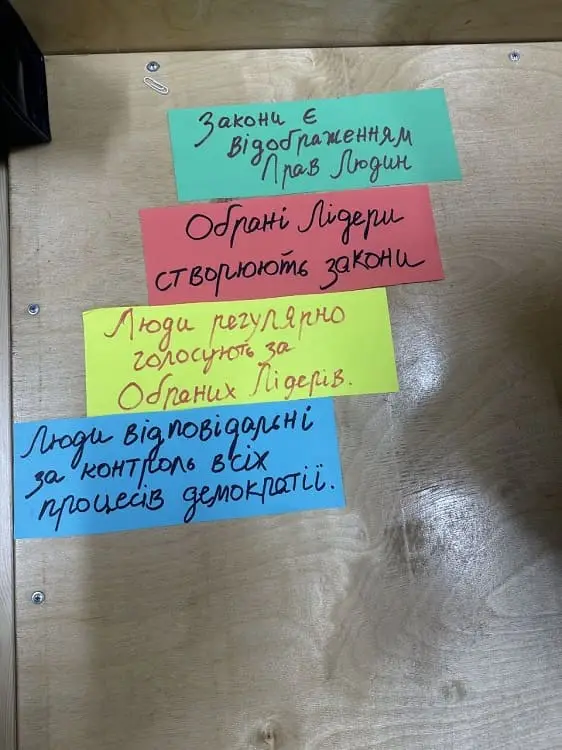 Закони є
відображенням
Прав Людин
Обрані Лідери
створюють закони
Люди регулярно
голосують за
Обраних Лідерів.
Люди відповідальні
за контроль всіх
процесів демократії.